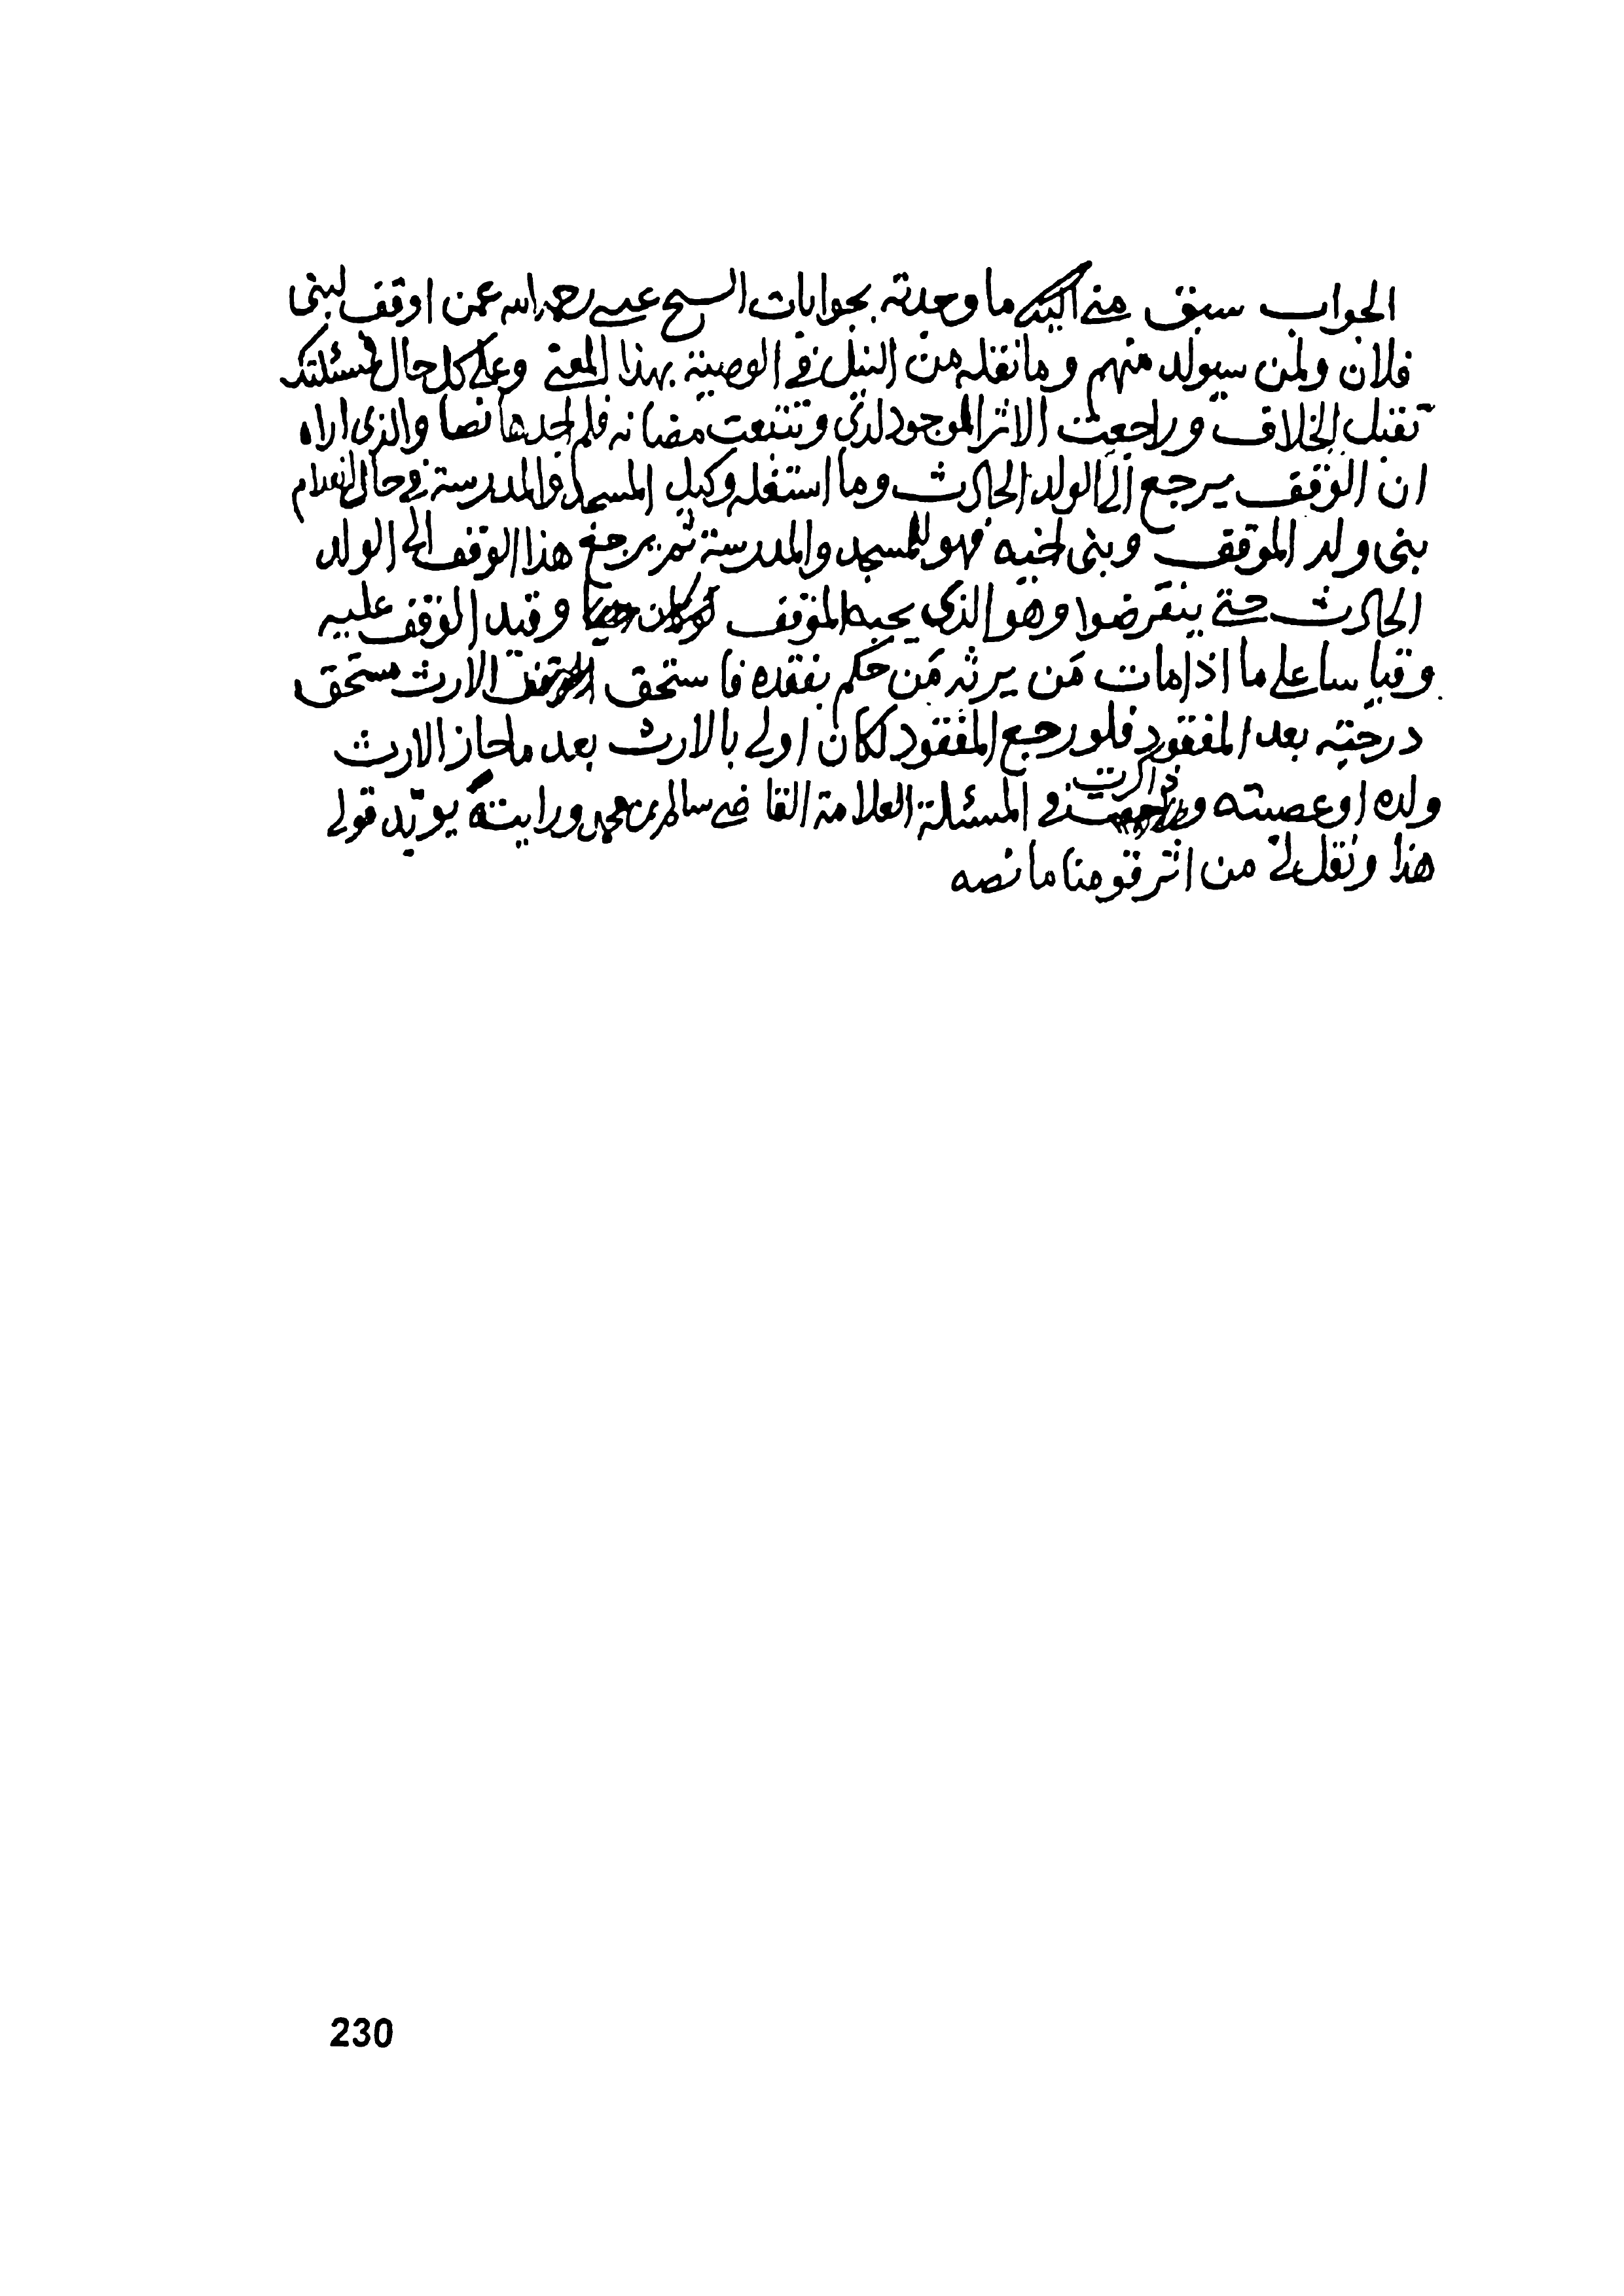 الجواب سبق مني اليك ما وجدته بجوابات الشيخ عيسى رحمه الله عمن اوقف لبني
فلان ولمن سيولد منهم وما نقله من النيل في الوصية بهذا المعنى وعلى كل حال فمسئلتك
تقبل الخلاف وراجعت الاثر الموجود لدي وتتبعت مضانه فلم اجدها نصا والذي اراه
ان الوقف يرجع الى الولد الحادث وما استغله وكيل المسجد والمدرسة في حال انعدام
بني ولد الموقف وبني اخيه فهو للمسجد والمدرسة ثم يرجع هذا الوقف الى الولد
الحادث حتى ينقرضوا وهو الذي يحبه الموقف لو كان حيا وقيد الوقف عليه
وقياسا على ما اذا مات مَن يرثه مَن حكم بفقده فاستحق الارث مستحق
درجته بعد المفقود فلو رجع المفقود لكان اولى بالارث بعد ما حاز الارث
ولده او عصبته وذاكرت في المسئلة العلامة القاضي سالم بن محمد ورايته يؤيد قولي
هذا ونقل لي من اثر قومنا ما نصه
230